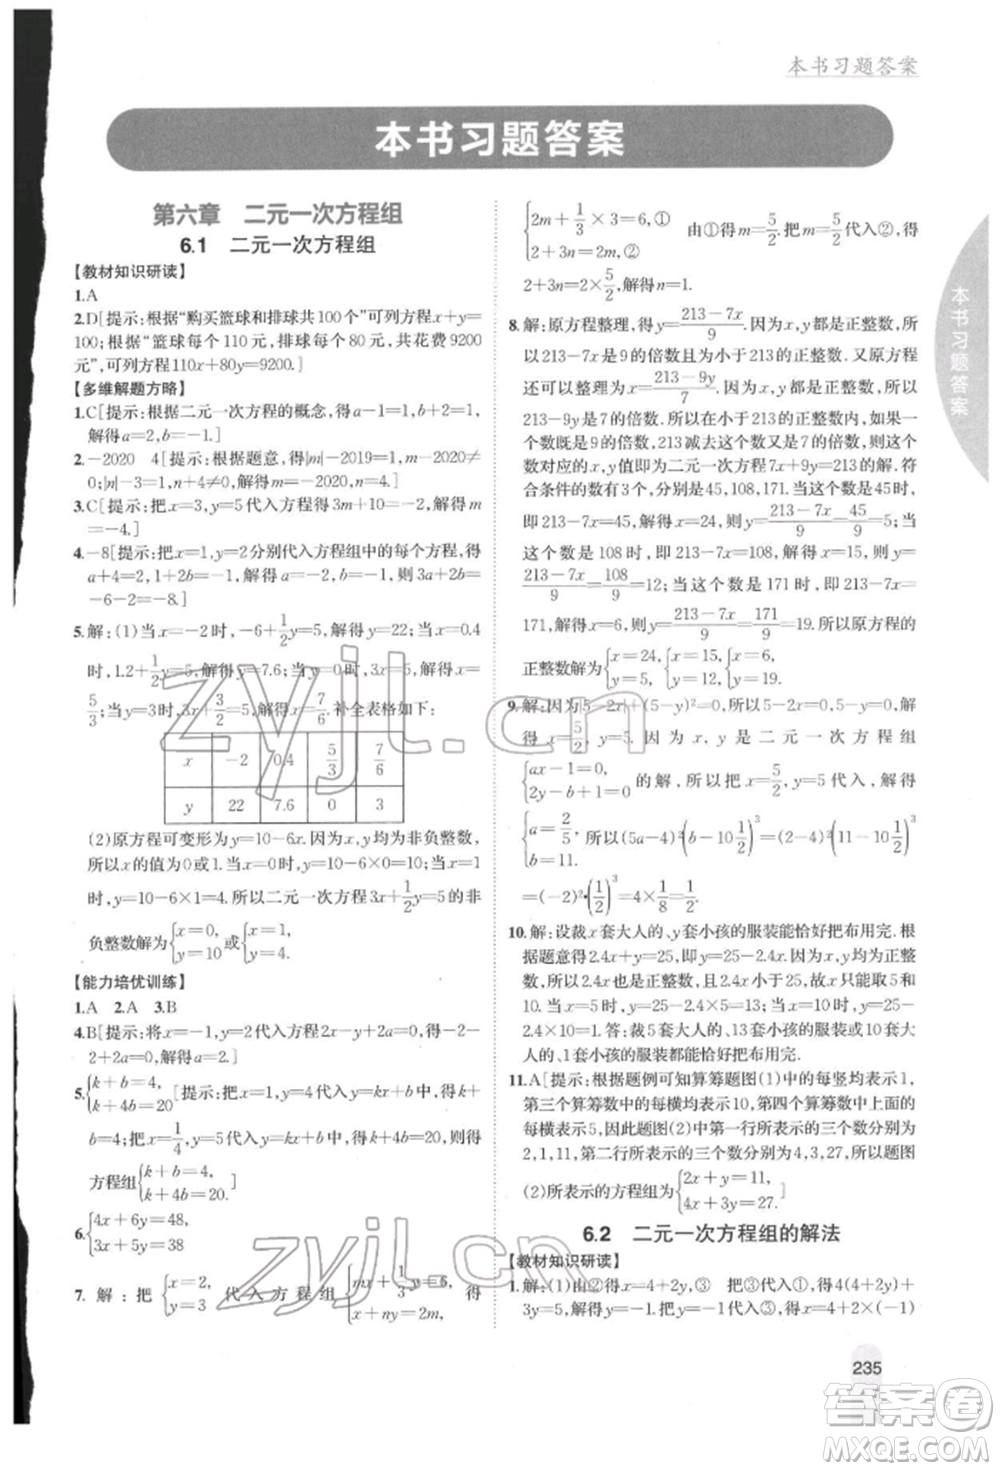 本书习题答案
本书习题答案
第六章 二元一次方程组
6.1 二元一次方程组
【教材知识研读】
1.A
2.D[提示:根据“购买篮球和排球共100个”可列方程x+y=
100;根据“篮球每个110元,排球每个80元,共花费9200
元”,可列方程110x+80y=9200.]
【多维解题方略】
1.C[提示:根据二元一次方程的概念,得a-1=1,b-1=1,
解得a=2,b=2.]
2.-2020 4[提示:根据题意,得|m|-2019=1,m-2020≠
0,|n|-3=1,n+4≠0,解得m=-2020,n=4.]
3.C[提示:把x=3,y=5代入方程得3m+10=-2,解得m
=-4.]
4.-8[提示:把x=1,y=2分别代入方程组中的每个方程,得
a+4=2,1+2b=-1,解得a=-2,b=-1,则3a+2b=
-6-2=-8.]
5.解:(1)当x=-2时,-6+1/2y=5,解得y=22;当x=0.4
时,1.2+1/2y=5,解得y=7.6;当y=0时,3x=5,解得x=
5/3;当y=3时,3x+3/2=5,解得x=7/6.补全表格如下:
x -2 0.4 5/3 7/6
y 22 7.6 0 3
(2)原方程可变形为y=10-6x.因为x,y均为非负整数,
所以x的值为0或1.当x=0时,y=10-6×0=10;当x=1
时,y=10-6×1=4.所以二元一次方程3x+1/2y=5的非
负整数解为{x=0,y=10或{x=1,y=4.
【能力培优训练】
1.A 2.A 3.B
4.B[提示:将x=-1,y=2代入方程2x-y+2a=0,得-2-
2+2a=0,解得a=2.]
5.{k+b=4,k+4b=20[提示:把x=1,y=4代入y=kx+b中,得k+b=4,
把x=1/4,y=5代入y=kx+b中,得1/4k+b=5,则所求的
方程组{k+b=4,k+4b=20.]
6.{4x+6y=48,3x+5y=38
7.解:把{x=2,y=3代入方程组{mx+1/3y=6,x+ny=2m,得
{2m+1/3×3=6,①2+3n=2m,② 由①得m=5/2.把m=5/2代入②,得
2+3n=2×5/2,解得n=1.
8.解:原方程整理,得y=(213-7x)/9.因为x,y都是正整数,所
以213-7x是9的倍数且是小于213的正整数.又原方程
还可以整理为x=(213-9y)/7,因为x,y都是正整数,所以
213-9y是7的倍数.所以在小于213的正整数内,如果一
个数既是9的倍数,213减去这个数又是7的倍数,则这个
数对应的x,y值即为二元一次方程7x+9y=213的解.符
合条件的数有3个,分别是45,108,171.当这个数是45时,
即213-7x=45,解得x=24,则y=(213-7x)/9=45/9=5;当这
个数是108时,即213-7x=108,解得x=15,则y=
(213-7x)/9=108/9=12;当这个数是171时,即213-7x=
171,解得x=6,则y=(213-7x)/9=171/9=19.所以原方程的
正整数解为{x=24,y=5,{x=15,y=12,{x=6,y=19.
9.解:因为|5-2x|+(5-y)²=0,所以5-2x=0,5-y=0,解得
x=5/2,y=5.因为x,y是二元一次方程组
{ax-1=0,2y-b+1=0的解,所以把x=5/2,y=5代入,解得
{a=2/5,b=11.所以(5a-4)²(b-10 1/2)³=(2-4)²(11-10 1/2)³
=(-2)²·(1/2)³=4×1/8=1/2.
10.解:设裁x套大人的、y套小孩的服装能恰好把布用完.根
据题意得2.4x+y=25,即y=25-2.4x.因为x,y都是正
整数,所以2.4x也是正整数,且小于25,故x只能取5和
10.当x=5时,y=25-2.4×5=13;当x=10时,y=25-
2.4×10=1.答:裁5套大人的、13套小孩的或裁10套大人
的、1套小孩的服装都能恰好把布用完.
11.A[提示:根据题例可知算筹题图(1)中的每竖对应1,
第三个算筹数中的每横对应10,第四个算筹数中的
每横表示5,因此题图(2)中第一行所表示的三个数分别为
2,1,11,第二行所表示的三个数分别为4,3,27,所以题图
(2)所表示的方程组为{2x+y=11,4x+3y=27.]
6.2 二元一次方程组的解法
【教材知识研读】
1.解:(1)由②得x=4+2y,③ 把③代入①,得4(4+2y)
+3y=5,解得y=-1.把y=-1代入③,得x=4+2×(-1)
本书习题答案
235
zyjl.cn
zyjl.cn
答案圈
MXQE.COM